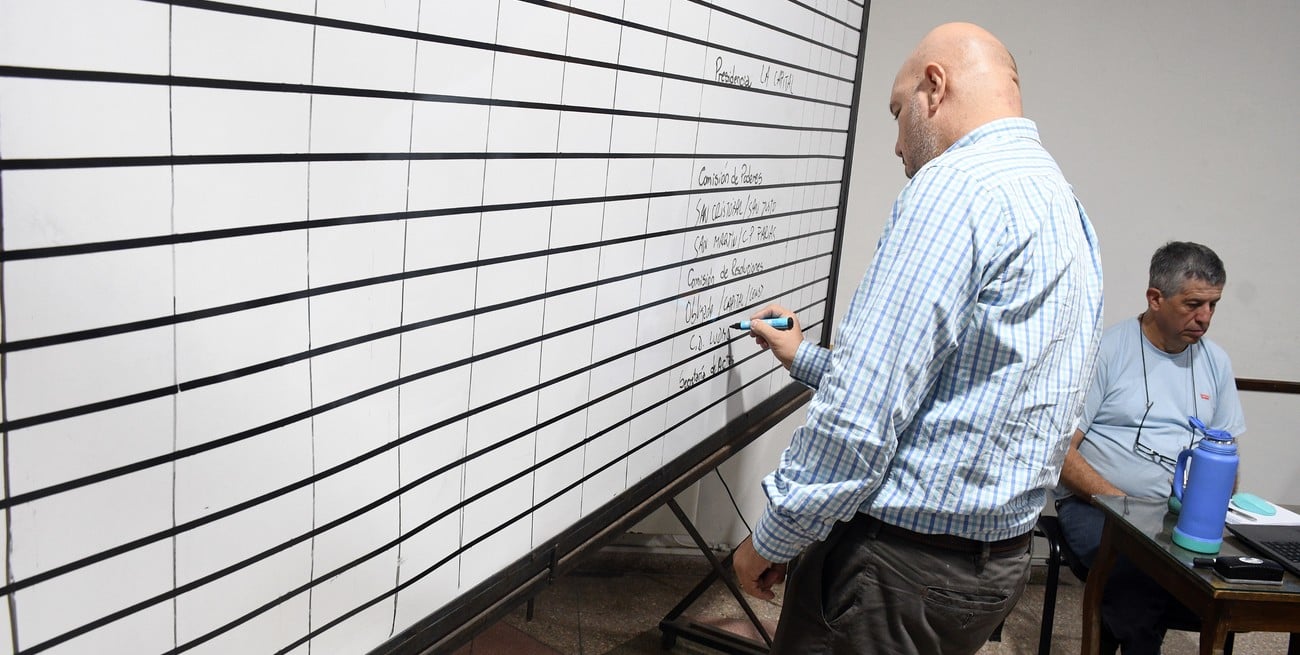 Presidencia LA CAPITAL
Comisión de Poderes
SAN CRISTOBAL / SAN JUSTO
SAN MARTIN / C.P. FARIAS
Comisión de Resoluciones
Obligado / CAPITAL / CENSO
C.D.
Secretaría de Actas